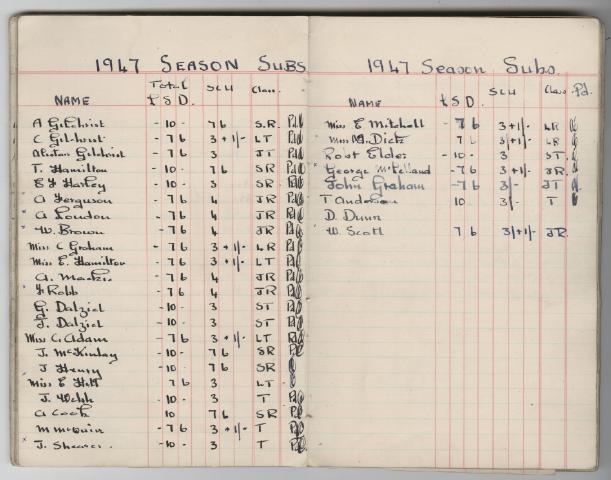 1947 SEASON SUBS
NAME Total £ S D. SCH Class.
A Gilchrist -10- 7 6 S.R. Pd
C Gilchrist -7 6 3 + 1/- LT Pd
Gilchrist -7 6 3 JT Pd
T. Hamilton -10- 7 6 SR Pd
Harley -10- 3 SR Pd
A Ferguson -7 6 4 JR Pd
A Loudon -7 6 4 JR Pd
W. Brown -7 6 4 JR Pd
Miss C Graham -7 6 3 + 1/- LR Pd
Miss E. Hamilton -7 6 3 + 1/- LT Pd
A. Mackie -7 6 4 JR Pd
Robb -7 6 4 JR Pd
G. Dalziel -10- 3 ST Pd
J. Dalziel -10- 3 ST Pd
Miss C. Adam -7 6 3 + 1/- LT Pd
J. McKinlay -10- 7 6 SR Pd
J Henry -10- 7 6 SR
Miss E Holt 7 6 3 LT
J. Welsh -10- 3 T Pd
A Cook 10 7 6 SR Pd
M -7 6 3 + 1/- T Pd
J. Shearer -10- 3 T Pd
1947 Season Subs.
NAME £ S D. SCH Class Pd.
Miss E Mitchell -7 6 3 + 1/- LR
Miss Dick 7 6 3/+1/- LR
Robt Elder -10- 3 ST.
George McLelland -7 6 3 + 1/- JR.
John Graham -7 6 3/- JT
T Anderson 10 3/- T
D. Dunn
W. Scott 7 6 3/+1/- JR.